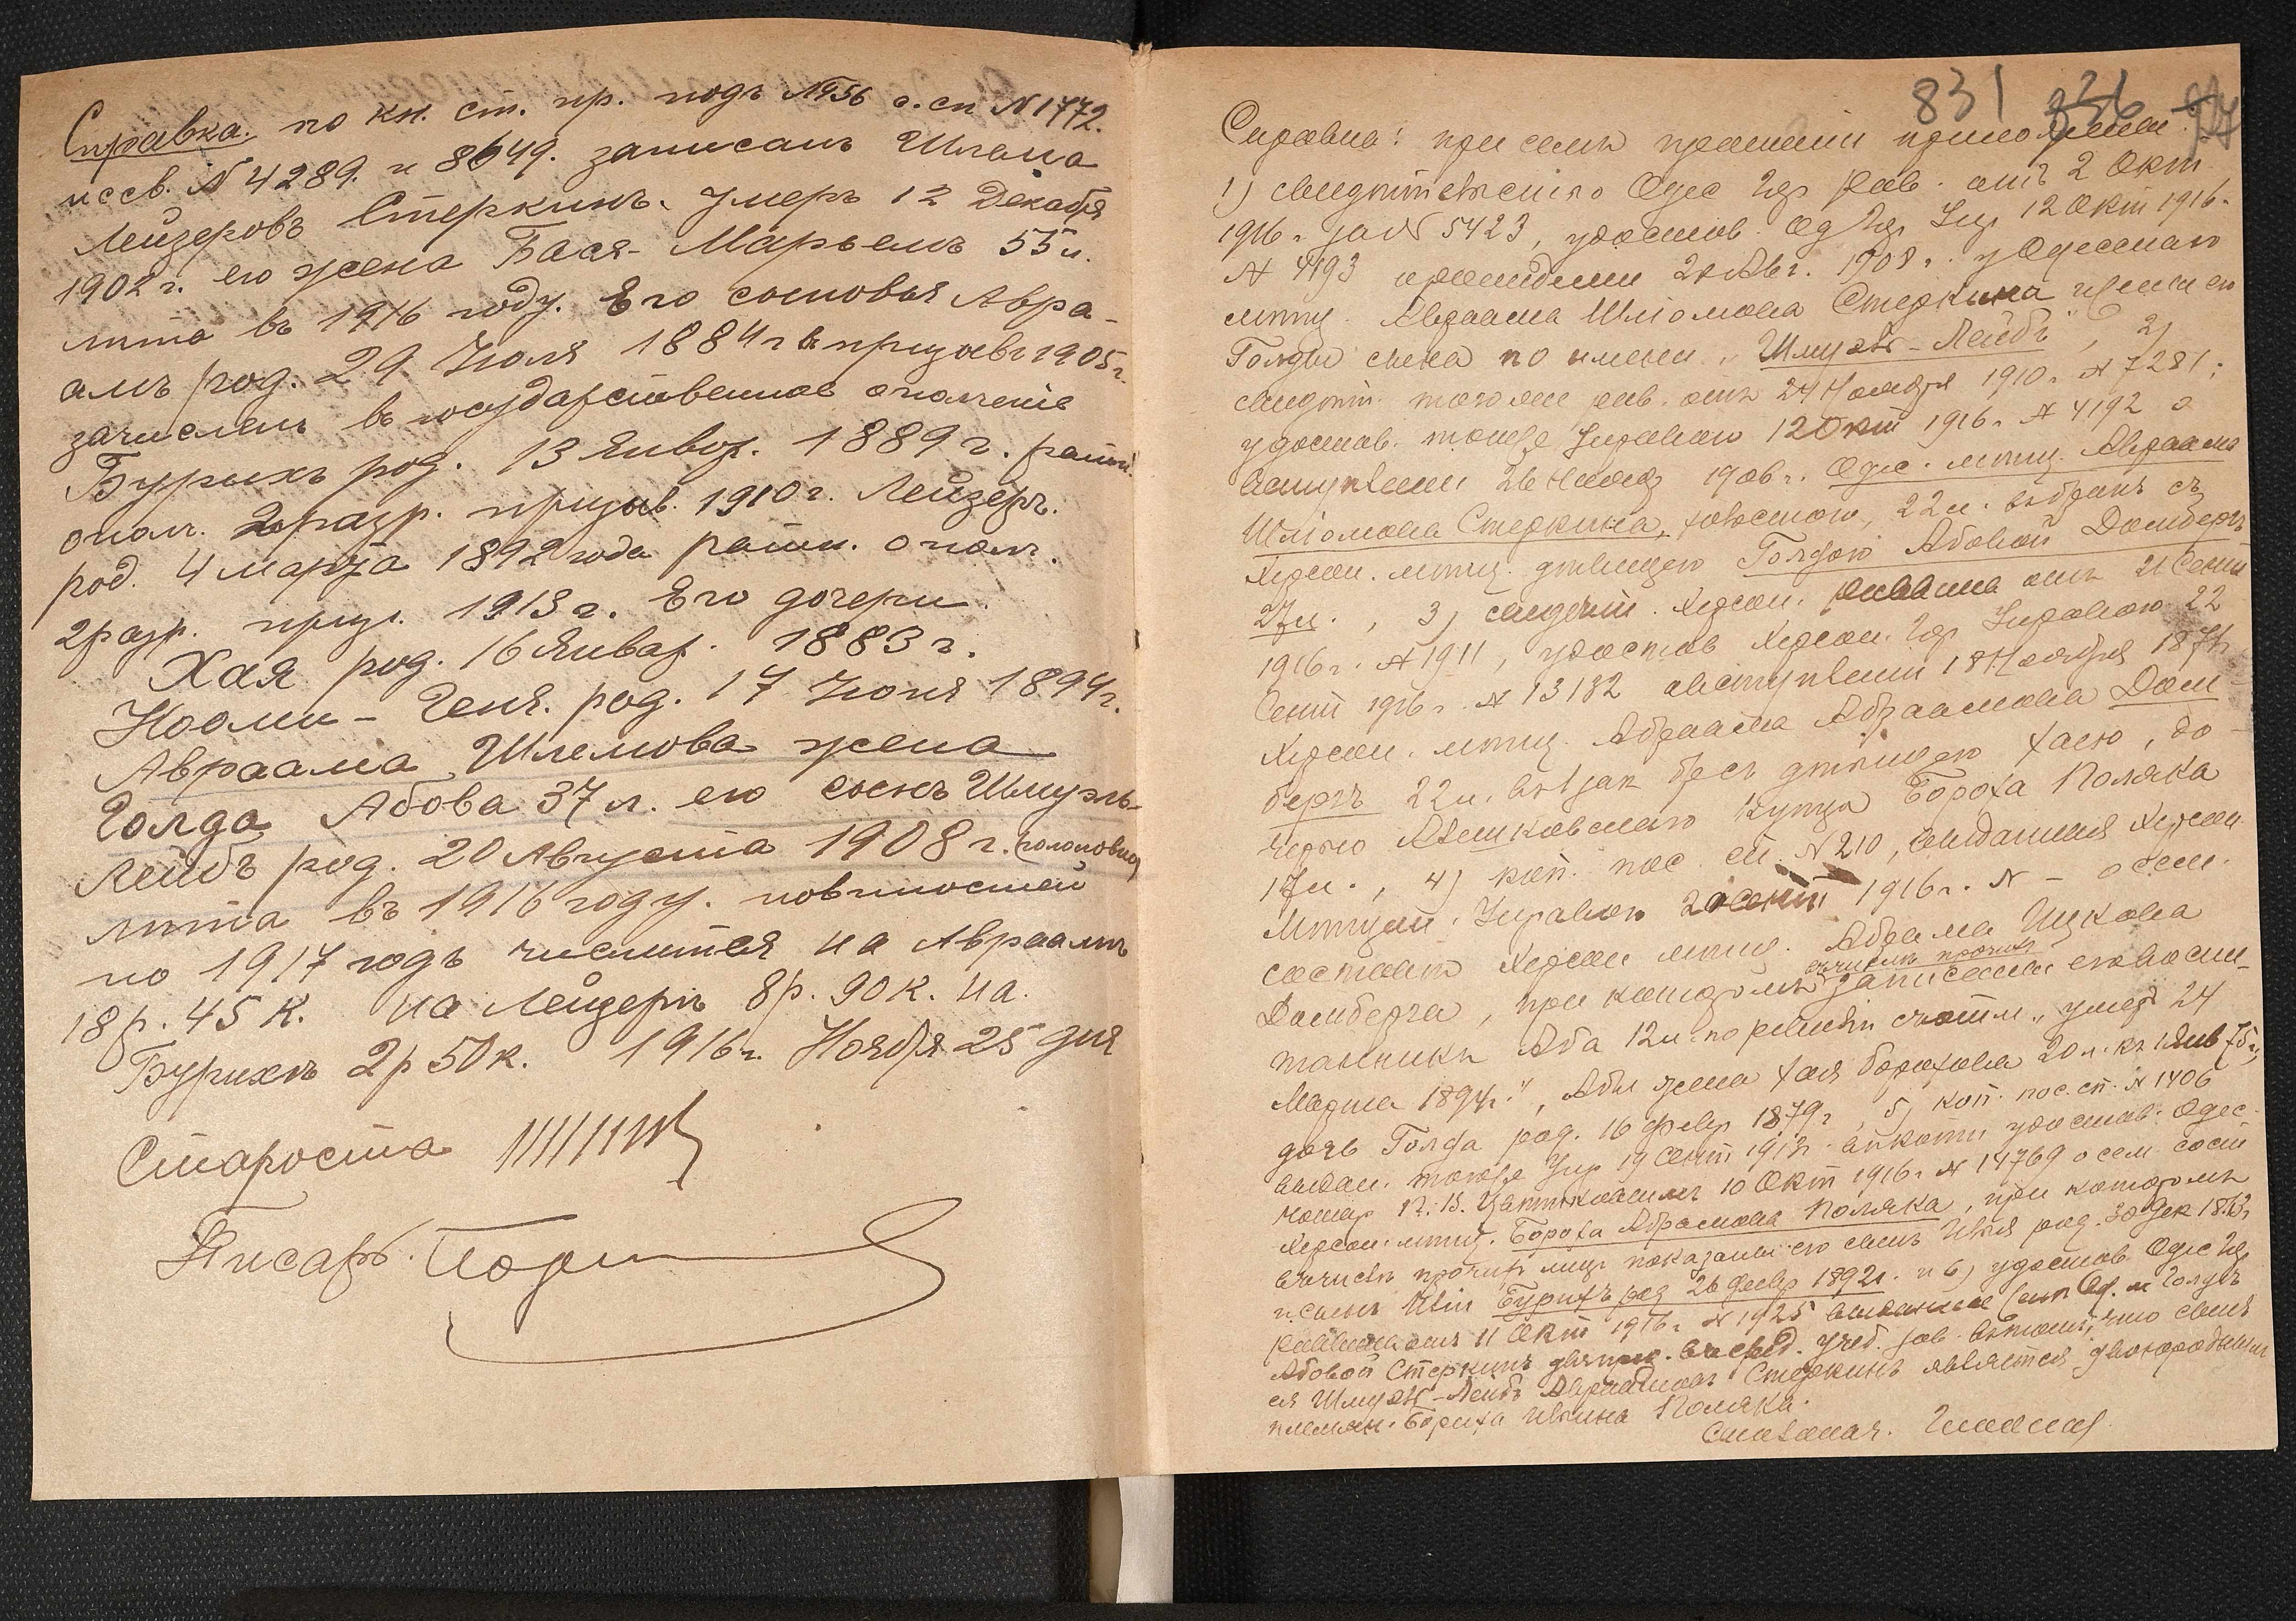 Справка. по кн. ст. пр. подъ №56 о. сп №1772.
и св. №4289. и 8649. записанъ Шлема
Лейзеровъ Стеркинъ. Умеръ 12 Декабря
1902 г. его жена Бася-Марьемъ 55 л.
лѣта въ 1916 году. Его сыновья Авра-
амъ род. 29 Іюля 1884 г въ призывъ 1905 г.
зачисленъ въ государственное ополченіе
Бурихъ род. 13 Январ. 1889 г. ратн.
опол. 2 разр. призыв. 1910 г. Лейзеръ.
род. 4 марта 1892 года ратн. опол.
2 разр. приз. 1913 г. Его дочери.
Хая род. 16 Январ. 1883 г.
Нооми - Геня. род. 17 Іюня 1894 г.
Авраама Шлемова жена
Голда Абова 37 л. его сынъ Шмуэль-
Лейбъ род. 20 Августа 1908 г. (половина
лѣта въ 1916 году. повинностей
по 1917 годъ числится на Авраамѣ
18 р. 45 к. на Лейзерѣ 8 р. 90 к. на
Бурихѣ 2 р 50 к. 1916 г. Ноября 25 дня
Староста
Писарь.
831 336
Справка: при семъ прошеніи приложены:
1) свидѣтельство Одес Гор Рав. отъ 2 Окт
1916 г за № 5423, удостов. Од Гор Упр 12 Окт 1916 г.
№ 4193 о рожденіи 20 Авг. 1908 г. у Одесскаго
мѣщ. Авраама Шліомова Стеркина и жены его
Голды сына по имени „Шмуэль-Лейбъ", 2)
свидѣт. того же рав. отъ 24 Ноября 1910 г. № 7281,
удостов. тою же Управою 12 Окт 1916 г. № 4192 о
вступленіи 26 Нояб 1906 г. Одес. мѣщ. Авраама
Шліомова Стеркина, холостого, 22 л. въ бракъ съ
Херсон. мѣщ. дѣвицею Голдою Абовой Домбергъ
27 л., 3) свидѣт. Херсон. Раввина отъ 21 Сент
1916 г. № 1911, удостов Херсон. Гор Управою 22
Сент 1916 г. № 13182 о вступленіи 18 Ноября 187
Херсон. мѣщ. Абраама Абраамова Дом
бергъ 22 л. въ бракъ съ дѣвицею Хаею, до-
черью Алешковскаго купца Бороха Поляка
17 л., 4) коп. пос. сп. № 210, выданная Херсон.
Мѣщан. Управою 20 Сент 1916 г. № - о сем.
составѣ Херсон мѣщ. Абрама Ицкова
Домберга, при которомъ въ числѣ прочихъ записаны его воспи-
танникъ Аба 12 л. по ревизіи счит., умеръ 24
Марта 1894 г.", Абы жена Хая Борохова 20 л. къ 1 Янв 78 г,
дочь Голда род. 16 февр 1879 г, 5) коп. пос. сп. № 1406
выдан. тою же Упр 19 Сент 191 г. в копіи удостов. Одес.
нотар 10 Окт 1916 г № 14769 о сем. сост
Херсон. мѣщ. Бороха Абрамова Поляка, при которомъ
въ числѣ прочихъ лицъ показаны его сынъ род. 30 Дек 186 г
и сынъ Бурихъ род 26 февр 1892 г. и 6) удостов Одес Гор
Раввина отъ 11 Окт 1916 г № 1925 выданное Голдѣ
Абовой Стеркинъ учеб. зав. въ томъ, что сынъ
ея Шмуэль-Лейбъ Авраамовъ Стеркинъ является двоюроднымъ
племян. Бориха Поляка.